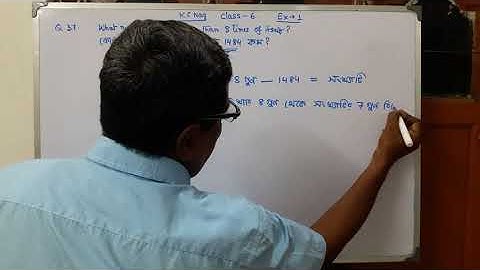 K C Nag Class-6 Ex→1
Q. 37. What than 8 times of itself?
1484 কম?
8 গুন — 1484 = সংখ্যাটি
8 গুন থেকে সংখ্যাটির 7 গুন